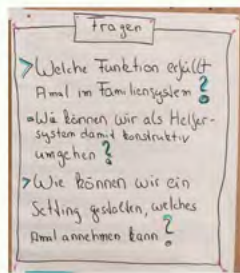 Fragen
Welche Funktion erfüllt
Amal im Familiensystem?
Wie können wir als Helfer-
system damit konstruktiv
umgehen?
Wie können wir ein
Setting gestalten, welches
Amal annehmen kann?